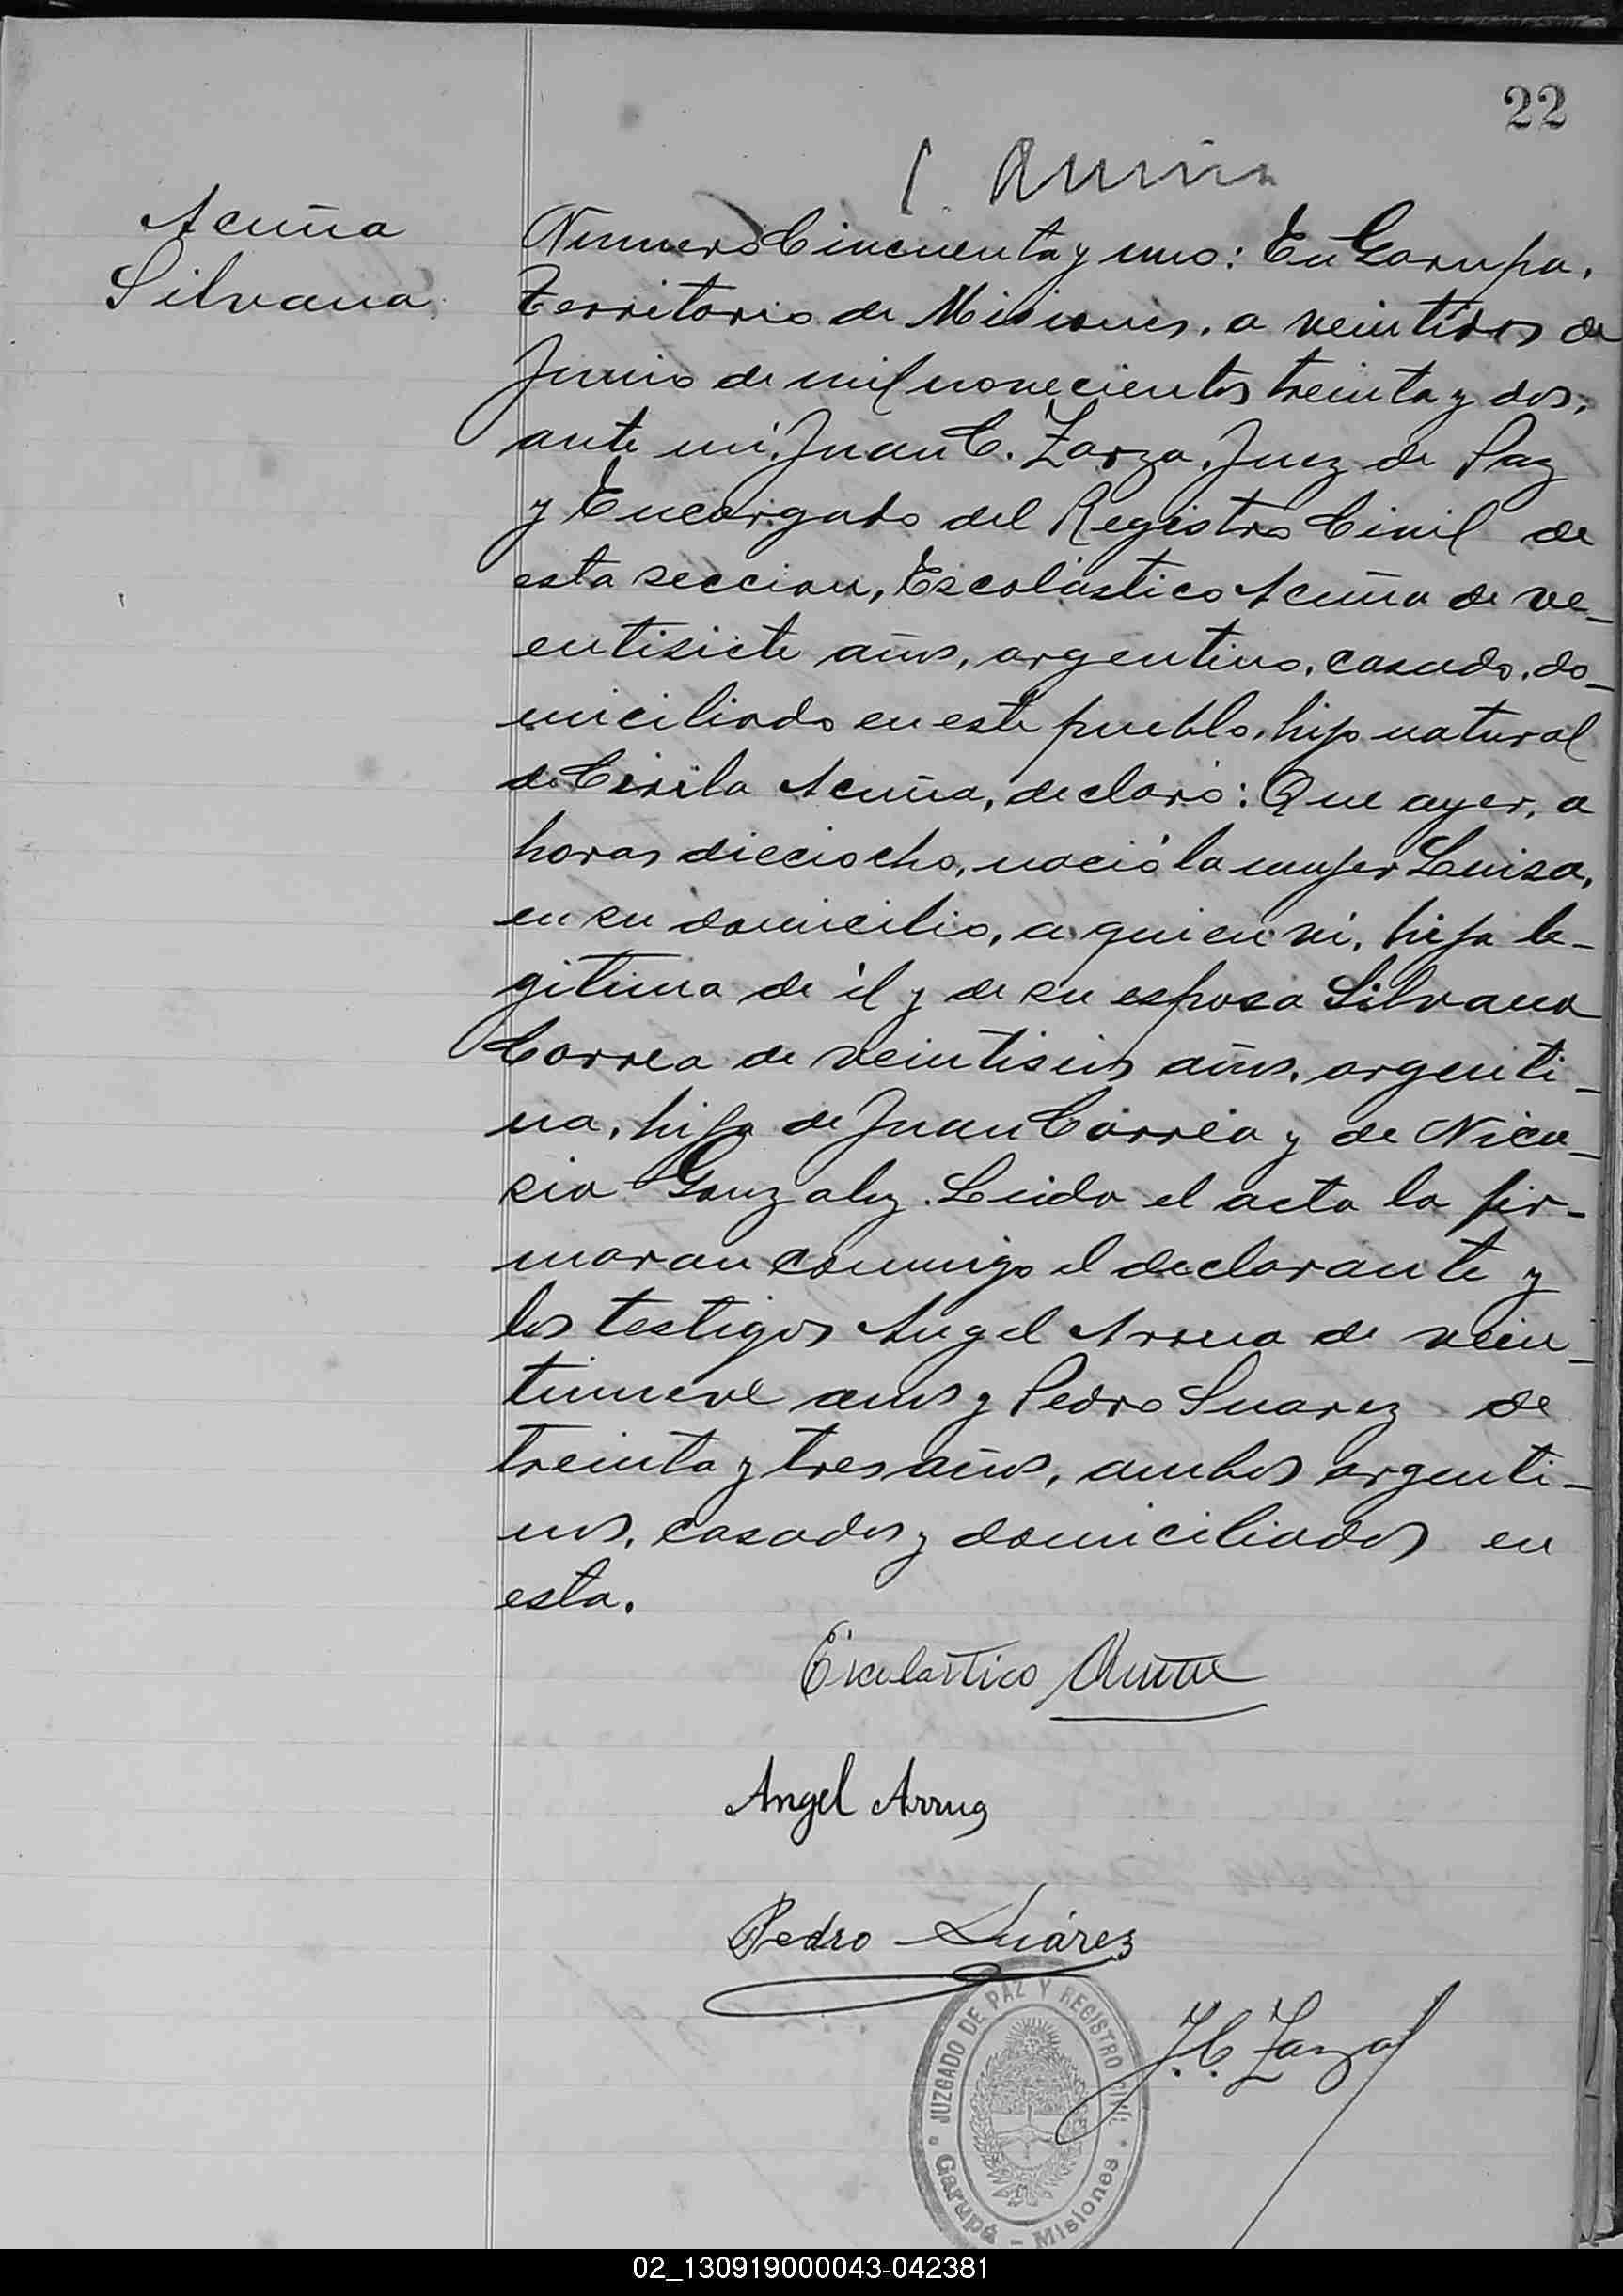 22
Acuña
Silvana
Numero Cincuenta y uno: En Garupa,
Territorio de Misiones, a veintidos de
Junio de mil novecientos treinta y dos,
ante mi, Juan C. Zarza, Juez de Paz
y Encargado del Registro Civil de
esta seccion, Escolástico Acuña de ve-
entisiete años, argentino, casado, do-
miciliado en este pueblo, hijo natural
de Cirila Acuña, declaró: Que ayer, a
horas dieciocho, nació la mujer Luisa,
en su domicilio, a quien vi, hija le-
gitima de él y de su esposa Silvana
Correa de veintiseis años, argenti-
na, hija de Juan Correa y de Nica-
sia Gonzalez. Leida el acta la fir-
maron conmigo el declarante y
los testigos Angel Arrua de vein-
tinueve años y Pedro Suarez de
treinta y tres años, ambos argenti-
nos, casados y domiciliados en
esta.
Escolastico Acuña
Angel Arrua
Pedro Suárez
J. C. Zarza
JUZGADO DE PAZ Y REGISTRO CIVIL
Garupá - Misiones
02_130919000043-042381